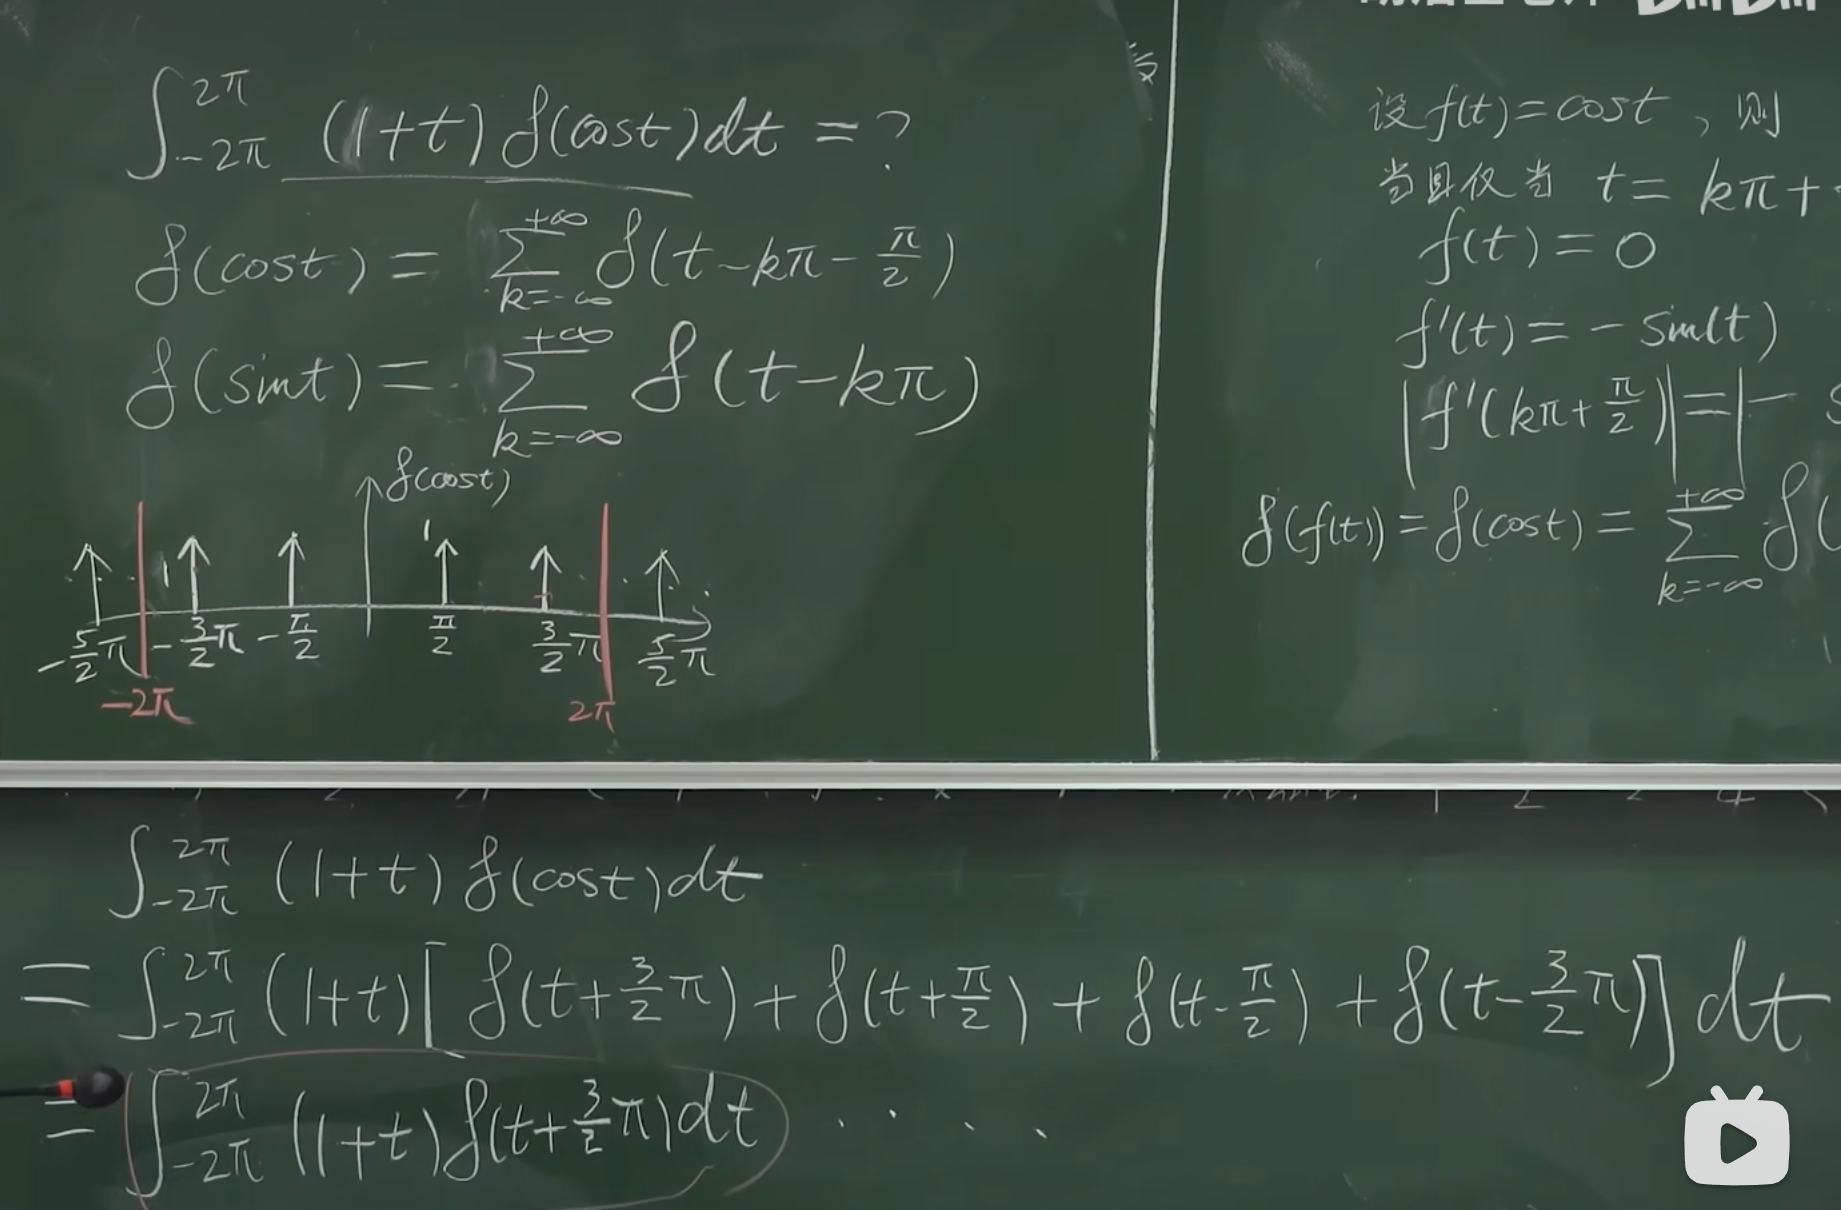 ∫_{-2π}^{2π} (1+t) δ(cost)dt = ?
δ(cost) = ∑_{k=-∞}^{+∞} δ(t-kπ-π/2)
δ(sint) = ∑_{k=-∞}^{+∞} δ(t-kπ)
δ(cost)
1 1
-5/2π -3/2π -π/2 π/2 3/2π 5/2π
-2π 2π
设f(t)=cost，则
当且仅当 t= kπ+
f(t)=0
f'(t)= -sin(t)
|f'(kπ+π/2)|=|-
δ(f(t))=δ(cost)= ∑_{k=-∞}^{+∞} δ(
∫_{-2π}^{2π} (1+t) δ(cost)dt
= ∫_{-2π}^{2π} (1+t)[δ(t+3/2π)+δ(t+π/2)+δ(t-π/2)+δ(t-3/2π)]dt
= ∫_{-2π}^{2π} (1+t)δ(t+3/2π)dt ....